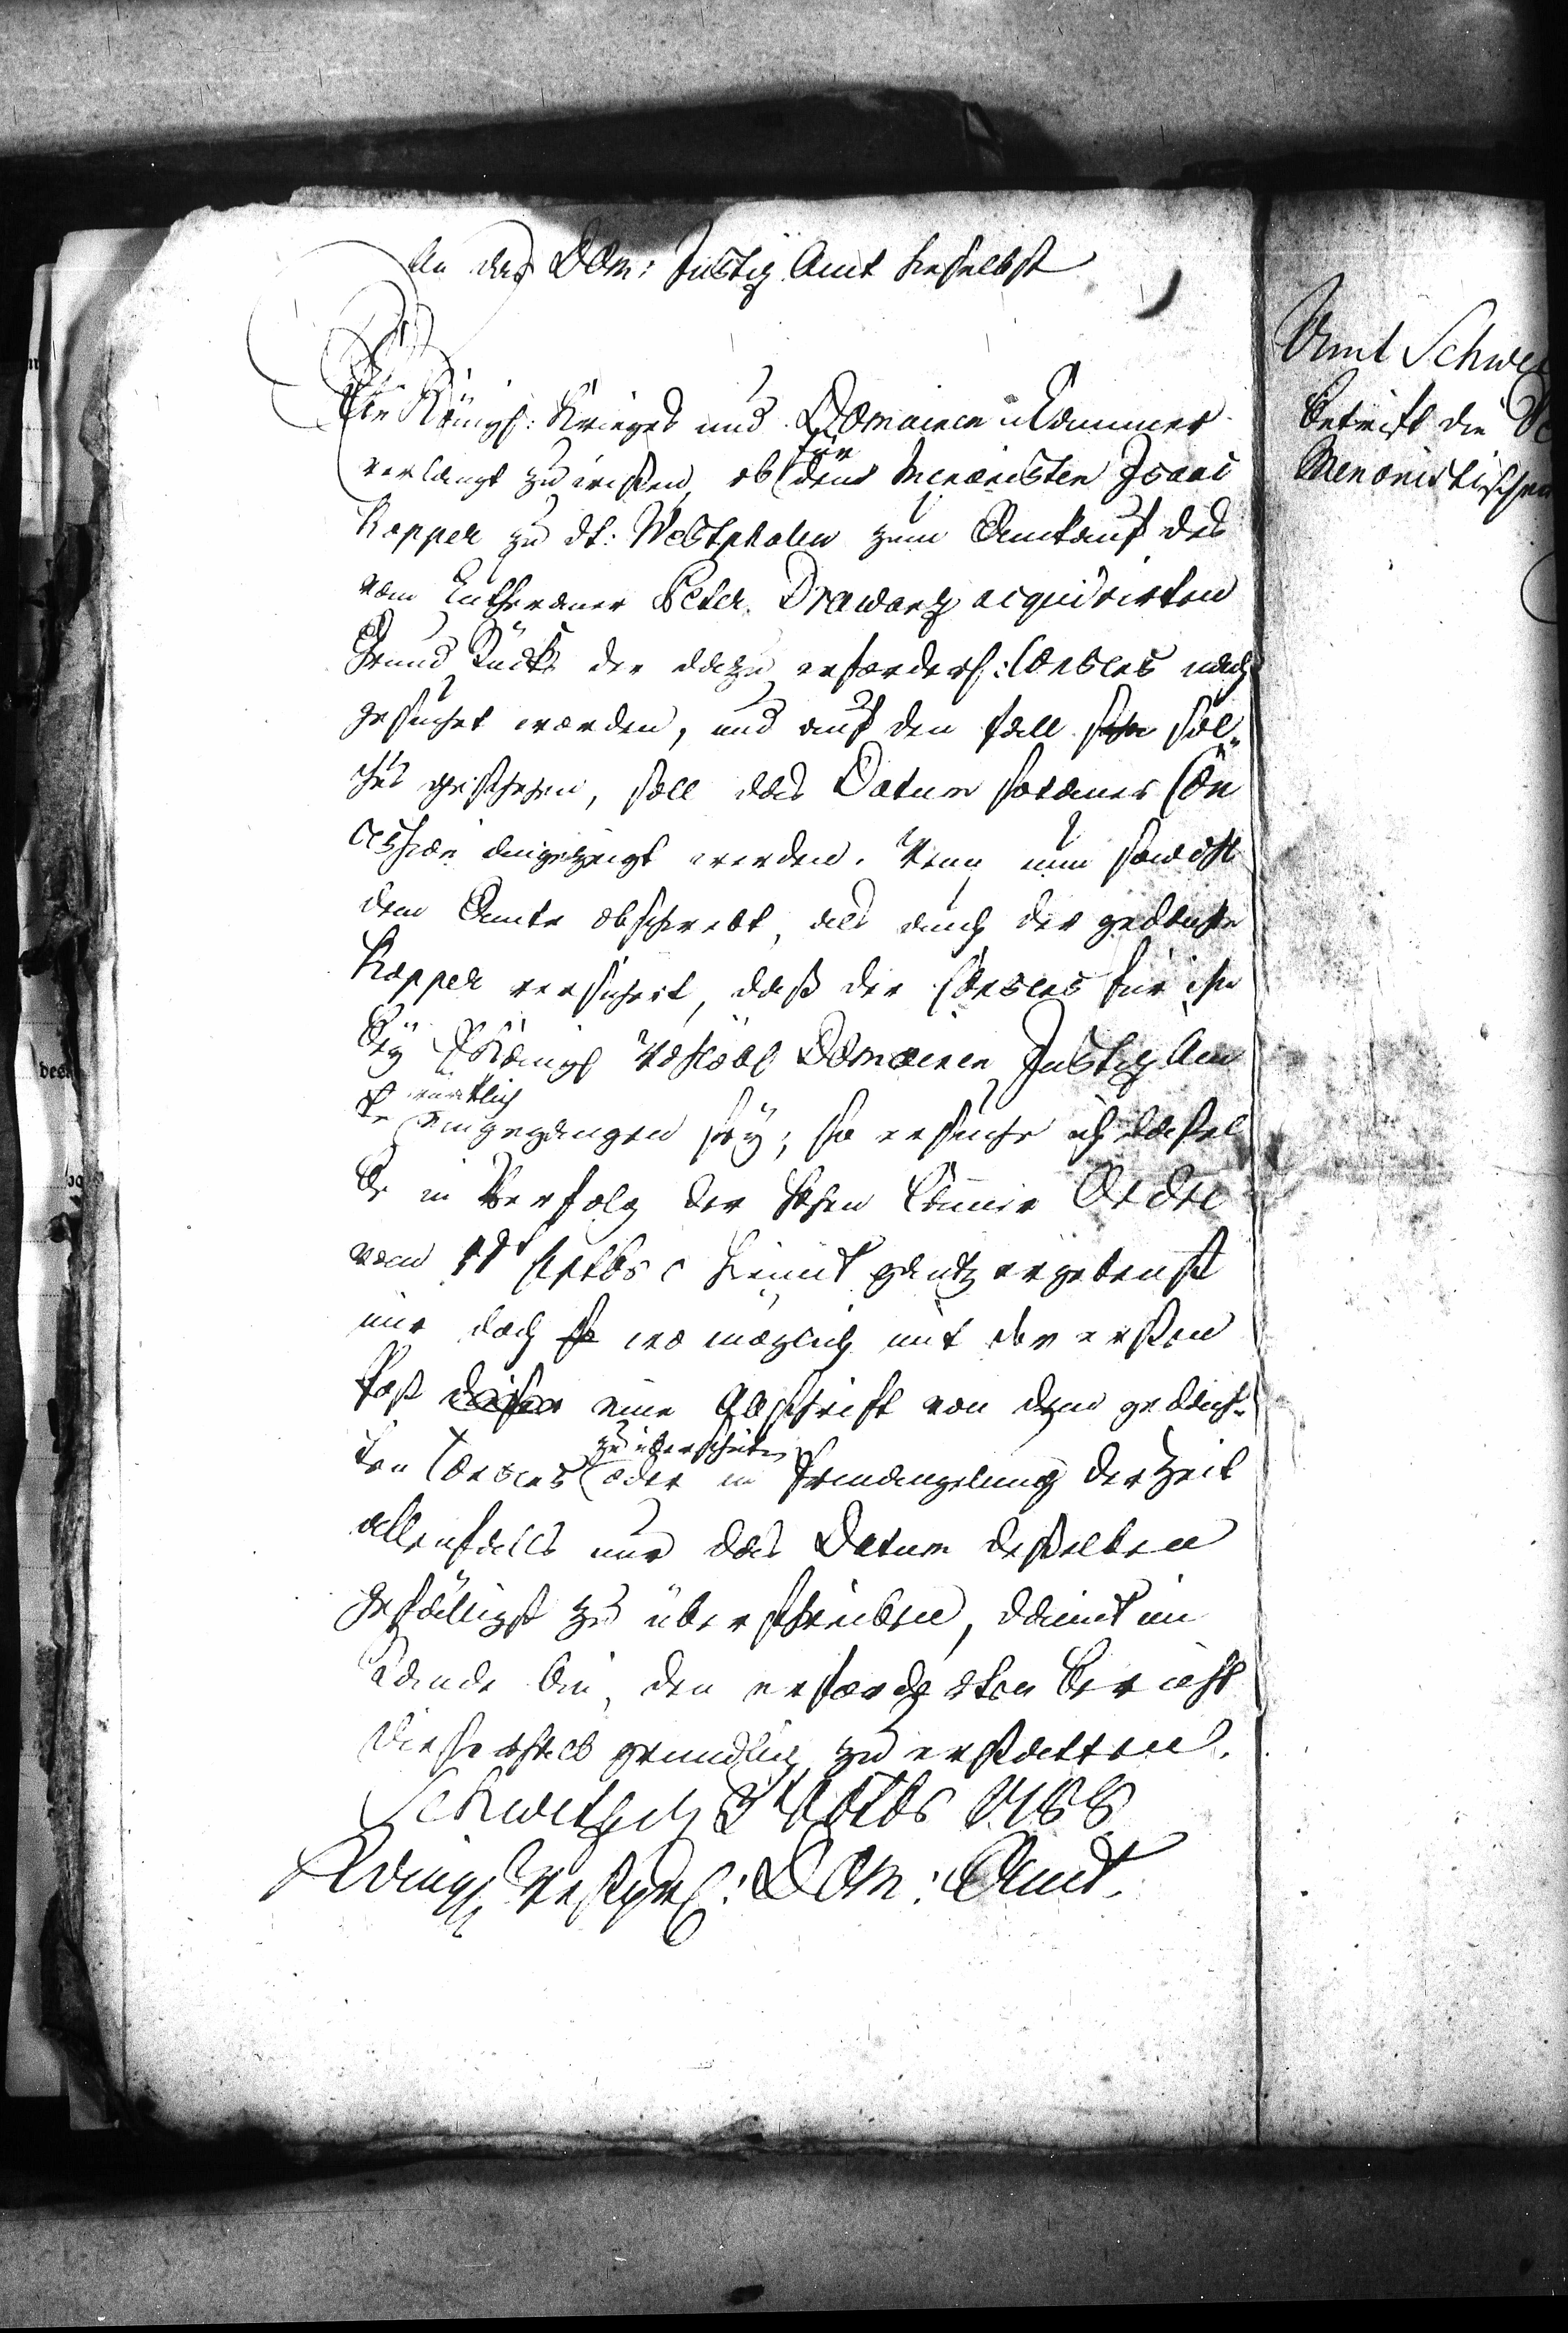 An das Dom: Justiz Amt hieselbst
Die Königl: Krieges und Domainen Kammer
verlangt zu wißen, ob für den Menonisten Isaac
Kopper zu dt: Westphalen zum Ankauf des
vom Lutheraner Peter Drawantz acquirirten
Grund Stücks der dazu erforderl: Consens nach
gesuchet worden, und auf den fall sol„
ches geschehen, soll das Datum sothaner Con
cession angezeigt werden. Wenn nun sowohl
dem Amte obschwebt, als auch der gedachte
Kopper versichert, daß der Consens für ihn
bey E Königl Wohllöbl Domainen Justiz Am
te würklich eingegangen sey; so ersuche ich dassel
be in Verfolg der hohen Cammer Ordre
vom 11t Septbr c hiemit gantz ergebenst
mir doch so wo möglich mit der ersten
Post dieser eine Abschrift von dem gedach„
ten Consens zu überschicken oder in Ermangelung der Zeit
allenfalls nur das Datum deßelben
gefälligst zu überschreiben, damit im
Stande bin, den erforderten Bericht
dieserhalb gründlich zu erstatten.
Schwetz d 3t Octbr 1788
Königl Westpr: Dom: Amt.
Amt Schwe
betrift die
Menonistischen